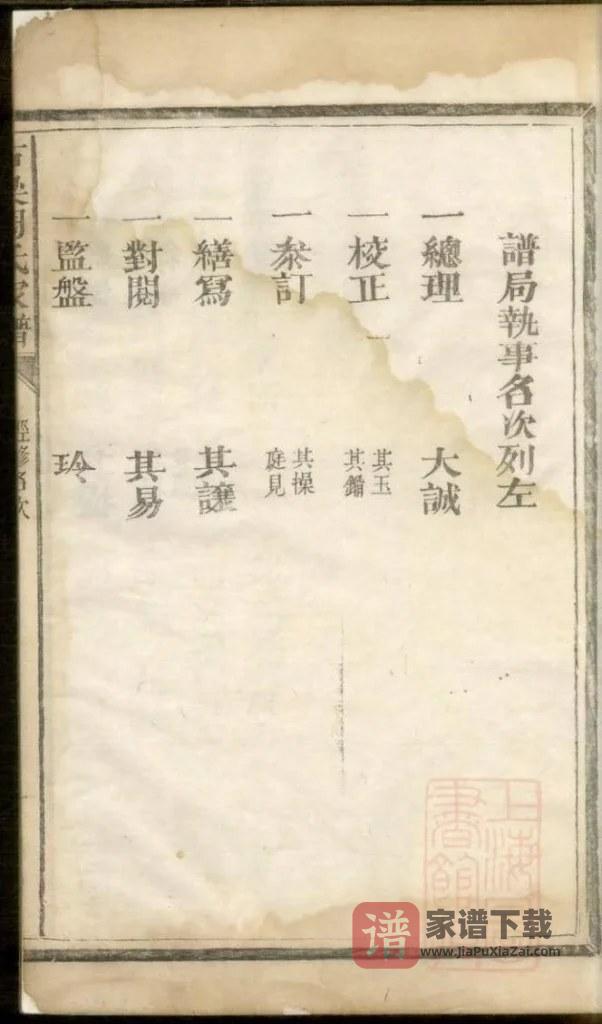 譜局執事名次列左
一總理 大誠
一校正 其玉 其鏽
一叅訂 其操 庭見
一繕寫 其讓
一對閱 其易
一監盤 玲
周氏家譜
經修名次
上海
書館
谱 家谱下载
www.JiaPuXiaZai.com